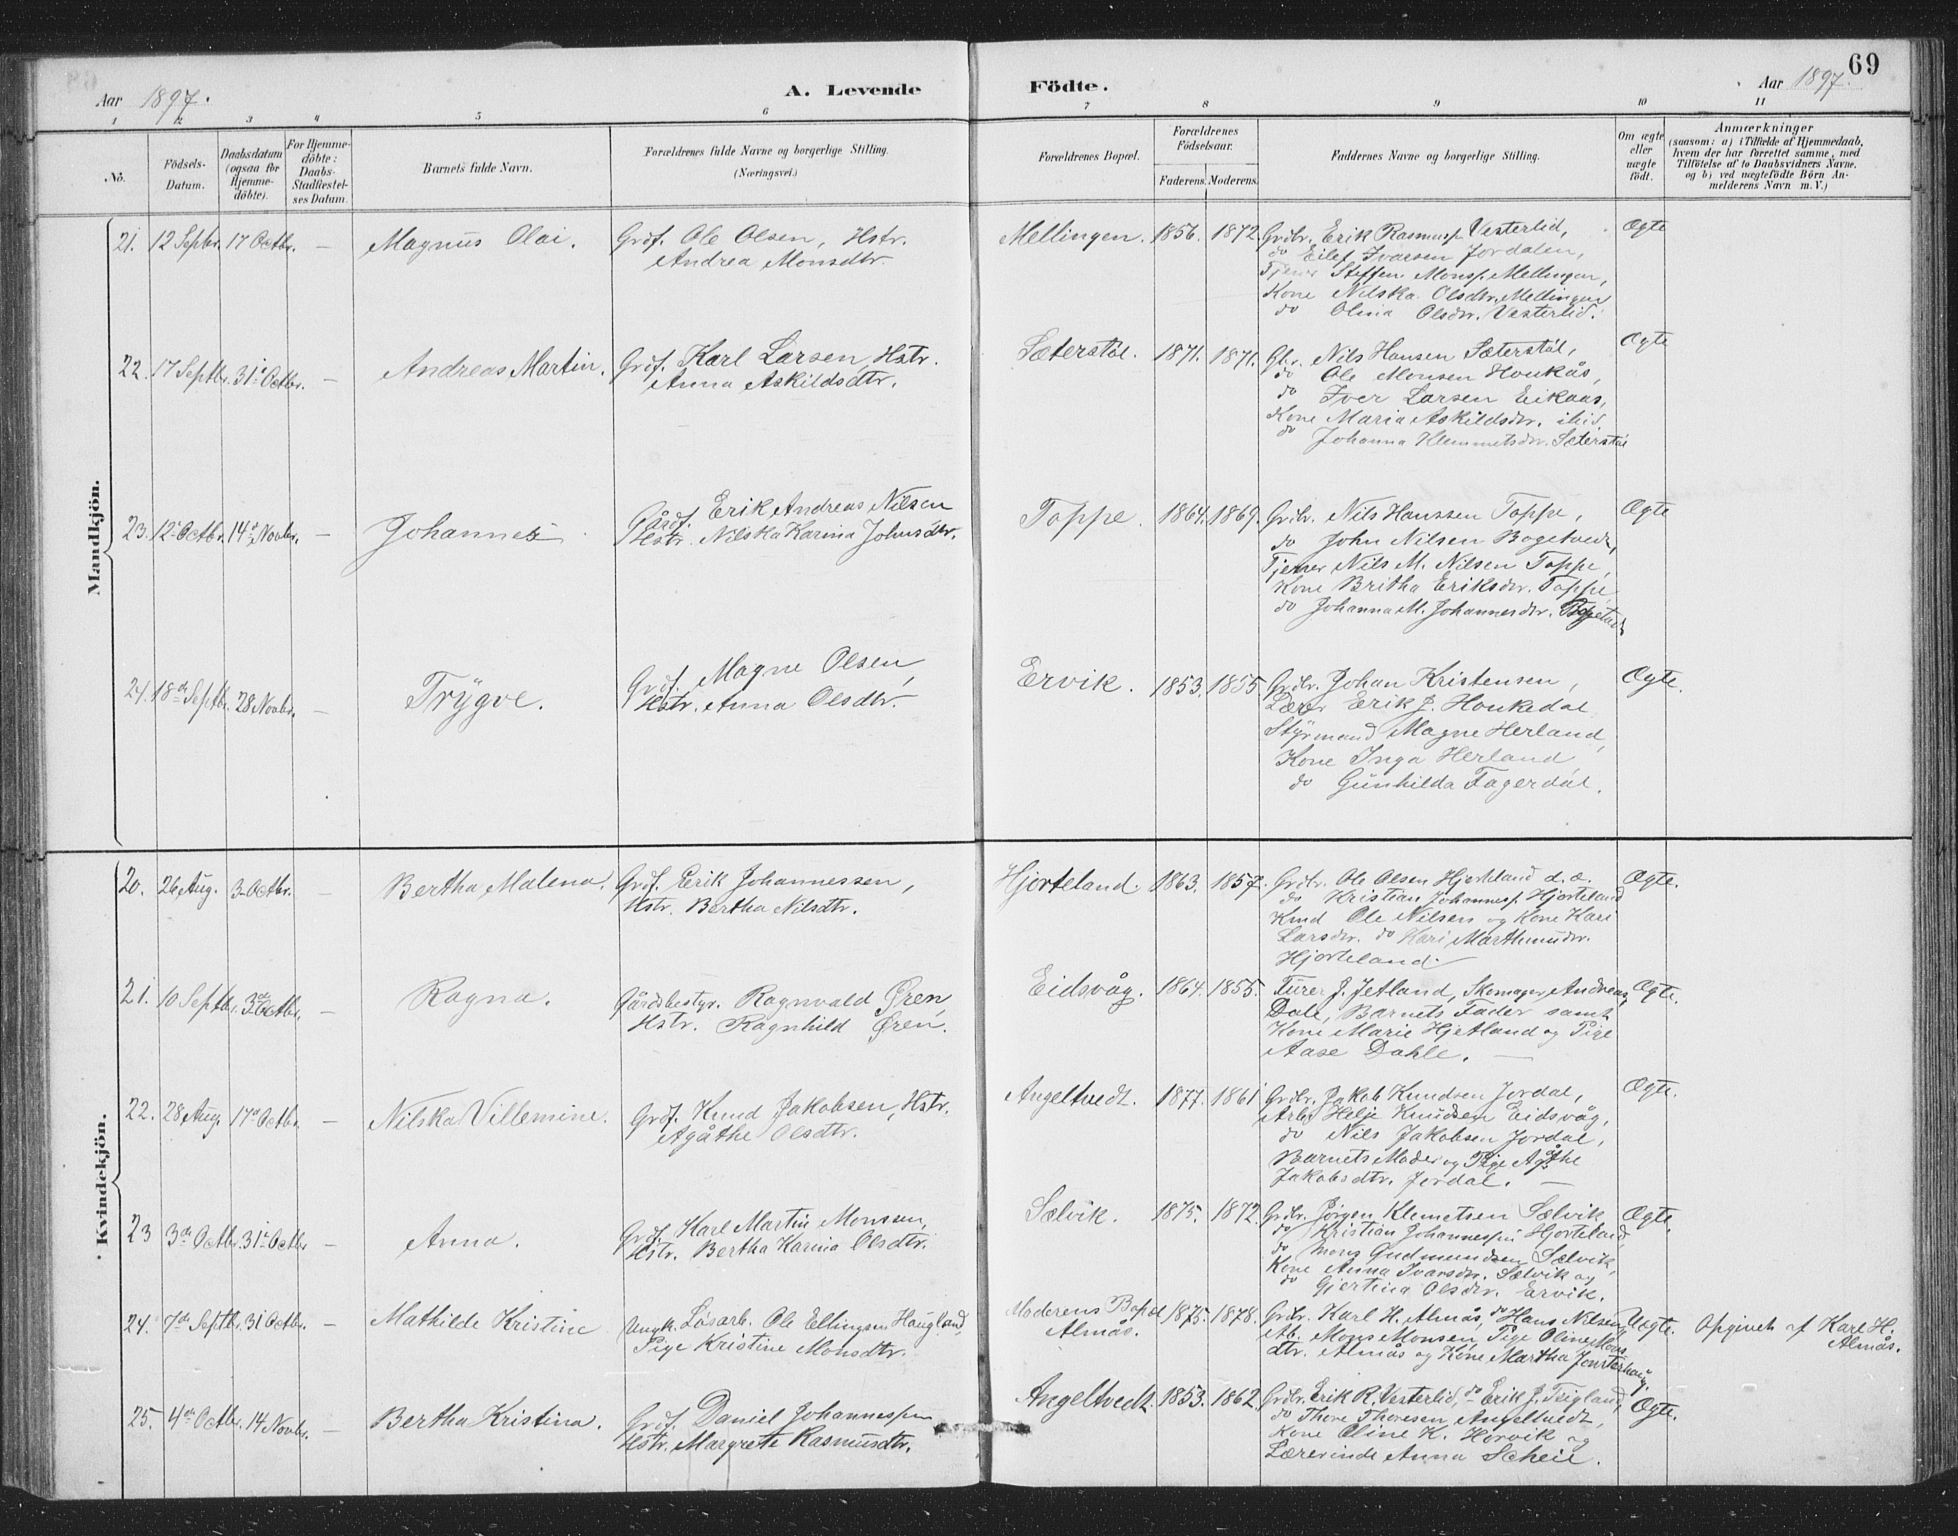 69
Aar 1897. A. Levende Födte. Aar 1897.
1 2 3 4 5 6 7 8 9 10 11
No.
Födsels-
Datum.
Daabsdatum
(ogsaa for
Hjemme-
döbte).
For Hjemme-
döbte:
Daabs-
Stadfæstel-
ses Datum.
Barnets fulde Navn.
Forældrenes fulde Navne og borgerlige Stilling.
(Næringsvei.)
Forældrenes Bopæl.
Forældrenes
Födselsaar.
Faderens. Moderens.
Faddernes Navne og borgerlige Stilling.
Om ægte
eller
uægte
födt.
Anmærkninger
(saasom: a) i Tilfælde af Hjemmedaab,
hvem der har forrettet samme, med
Tilföielse af to Daabsvidners Navne,
og b) ved uægtefödte Börn An-
melderens Navn m. V.)
Mandkjön.
21. 12 Septbr. 17 Octbr. — Magnus Olai. Grdf. Ole Olsen, Hstr.
Andrea Monsdtr.
Mellingen. 1856. 1872. Grdbr. Erik Rasmusp. Vesterlid, Ægte
do Eilef Ivarsen Jordalen,
Tjener Steffen Monsp. Mellingen,
Kone Nilska Olsdtr. Mellingen
do Olina Olsdr. Vesterlid.
22. 17 Septbr. 31 Octbr. — Andreas Martin. Grdf. Karl Larsen, Hstr.
Anna Askildsdtr.
Sæterstøl. 1871. 1871. Gbr. Nils Hansen Sæterstøl, Ægte
do Ole Monsen Houkås,
do Iver Larsen Eikaas,
Kone Maria Askildsdr. ibid.
do Johanna Klemmetsdr. Sæterstøl
23. 12 Octbr. 14 Novbr. — Johannes Gårdf. Erik Andreas Nilsen
Hstr. Nilska Karina Johnsdtr.
Toppe. 1864. 1869. Grdbr. Nils Hanssen Toppe, Ægte
do John Nilsen Bogetvedt,
Tjener Nils M. Nilsen Toppe,
Kone Britha Eriksdr. Toppe,
do Johanna M. Johannesdr.
24. 18de Septbr. 28 Novbr. — Trygve. Grdf. Magne Olsen,
Hstr. Anna Olsdtr.
Ervik. 1853. 1855. Grdbr. Johan Kristensen, Ægte.
Lærer Erik J. Houkedal
Styrmand Magne Herland,
Kone Inga Herland
do Gunhilda Fagerdal.
Kvindekjön.
20. 26 Aug. 3 Octbr. — Bertha Malena. Grdf. Erik Johannessen,
Hstr. Bertha Nilsdtr.
Hjorteland. 1863. 1857. Grdbr. Ole Olsen Hjorteland d.æ. Ægte.
do Kristian Johannesp. Hjorteland
Knud Ole Nilsen og Kone Kari
Larsdr. do Kari Marthinusdr.
Hjorteland.
21. 10 Septbr. 3 Octbr. — Ragna. Gårdsbestyr. Ragnvald Øren,
Hstr. Ragnhild Øren.
Eidsvåg. 1864. 1855. J. Jetland, Skomager Andreas Ægte.
Dale, Barnets Fader samt
Kone Marie Hjetland og Pige
Aase Dahle. —
22. 28 Aug. 17 Octbr. — Nilska Villemine. Grdf. Knud Jakobsen, Hstr.
Agåthe Olsdtr.
Angeltvedt. 1877. 1861 Grdbr. Jakob Knudsen Jordal, Ægte.
Arb. Helje Knudsen Eidsvåg,
do Nils Jakobsen Jordal,
Barnets Moder og Pige Agåthe
Jakobsdtr. Jordal. —
23 3de Octbr. 31 Octbr — Anna. Grdf. Karl Martin Monsen,
Hstr. Bertha Karina Olsdtr.
Sælvik. 1875. 1872. Grdbr. Jørgen Klemetsen Sælvik Ægte.
do Kristian Johannesp. Hjorteland,
do Mons Gudmundsen Sælvik,
Kone Anna Ivarsdr. Sælvik og
do Gjertina Olsdr. Ervik.
24. 7de Septbr. 31 Octbr. — Mathilde Kristine Ungk. Løsarb. Ole Ellingsen Haugland,
Pige Kristine Monsdtr.
Moderens Bopæl 1875. 1878. Grdbr. Karl H. Almås, do Hans Nilsen, Uægte. Opgivet af Karl H.
Almås. Mons Monsen, Pige Oline Mons- Almås.
dtr. Almås og Kone Martha
25. 4de Octbr. 14 Novbr. — Bertha Kristina. Grdf. Daniel Johannesp.
Hstr. Margrete Rasmusdtr.
Angeltvedt. 1853. 1862. Grdbr. Erik R. Vesterlid, do Erik J. Teigland, Ægte.
do Thore Thoresen Angeltvedt,
Kone Oline K. Horvik og
Lærerinde Anna Scheie.